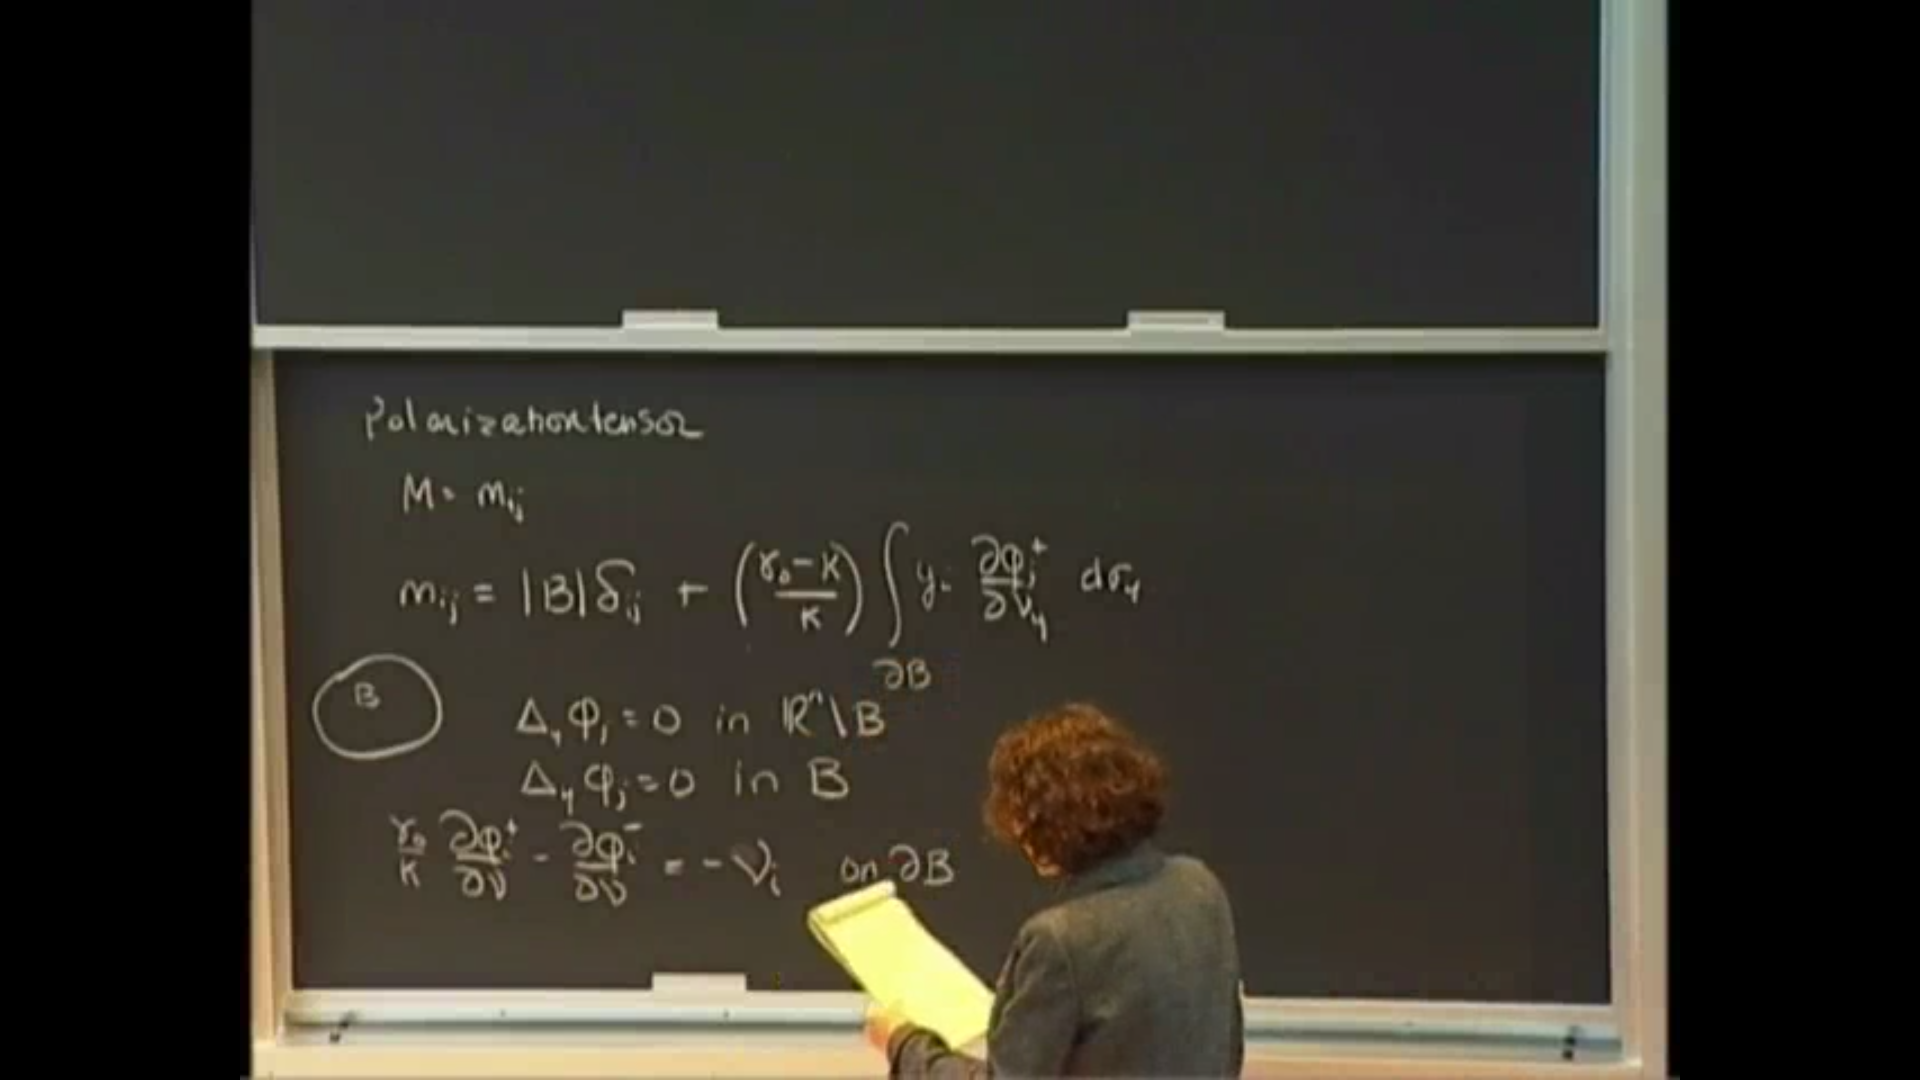 Polarization tensor
M = m_ij
m_ij = |B| δ_ij + ((γ₀ - K)/K) ∫_∂B y_i ∂φ_j⁺/∂ν_y dσ_y
B
Δ_y φ_j = 0 in ℝⁿ \ B
Δ_y φ_j = 0 in B
γ₀/K ∂φ_i⁺/∂ν - ∂φ_i⁻/∂ν = -ν_i on ∂B